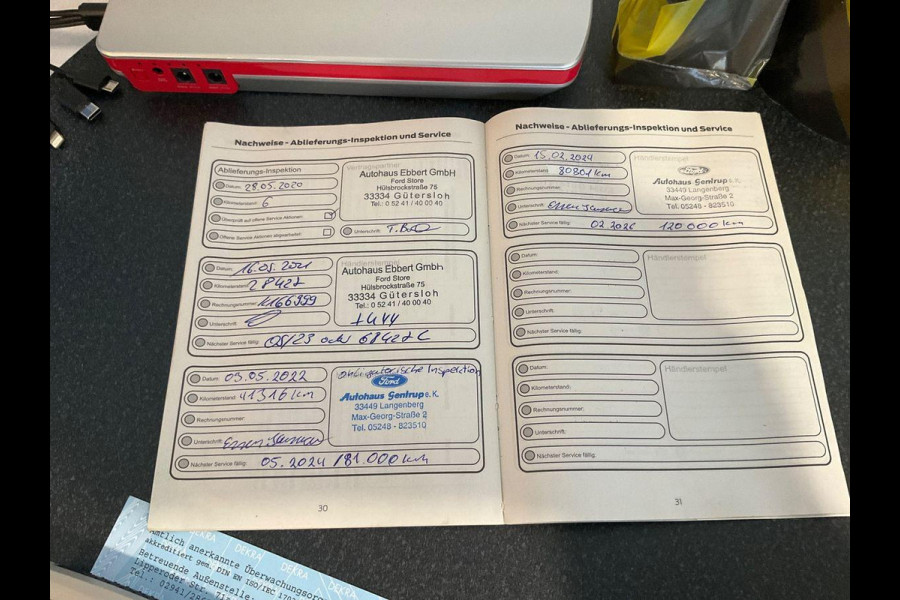 Nachweise - Ablieferungs-Inspektion und Service
Ablieferungs-Inspektion
Datum: 28.05.2020
Kilometerstand: 6
Überprüft auf offene Service-Aktionen:
Offene Service Aktionen abgearbeitet:
Autohaus Ebbert GmbH
Ford Store
Hülsbrockstraße 75
33334 Gütersloh
Tel.: 0 52 41 / 40 00 40
Unterschrift:
Datum: 16.05.2021
Kilometerstand: 28427
Rechnungsnummer: 1166999
Unterschrift:
Nächster Service fällig: 05/23 oder 68427
Händlerstempel
Autohaus Ebbert GmbH
Ford Store
Hülsbrockstraße 75
33334 Gütersloh
Tel.: 0 52 41 / 40 00 40
Datum: 03.05.2022
Kilometerstand: 41316 km
Rechnungsnummer:
Unterschrift:
Nächster Service fällig: 05.2024 / 81.000 km
Inspektion
Ford
Autohaus Gentrup e. K.
33449 Langenberg
Max-Georg-Straße 2
Tel. 05248 - 823510
30
Nachweise - Ablieferungs-Inspektion und Service
Datum: 15.02.2024
Kilometerstand: 80801 km
Rechnungsnummer:
Unterschrift:
Nächster Service fällig: 02.2026 120 000 km
Händlerstempel
Ford
Autohaus Gentrup e. K.
33449 Langenberg
Max-Georg-Straße 2
Tel. 05248 - 823510
Datum:
Kilometerstand:
Rechnungsnummer:
Unterschrift:
Nächster Service fällig:
Händlerstempel
Datum:
Kilometerstand:
Rechnungsnummer:
Unterschrift:
Nächster Service fällig:
Händlerstempel
31
DEKRA
DEKRA
DEKRA
Amtlich anerkannte Überwachungsorg
akkreditiert gem. DIN EN ISO/IEC 170
Betreuende Außenstelle:
Lipperoder Str.
Tel.: 02941/